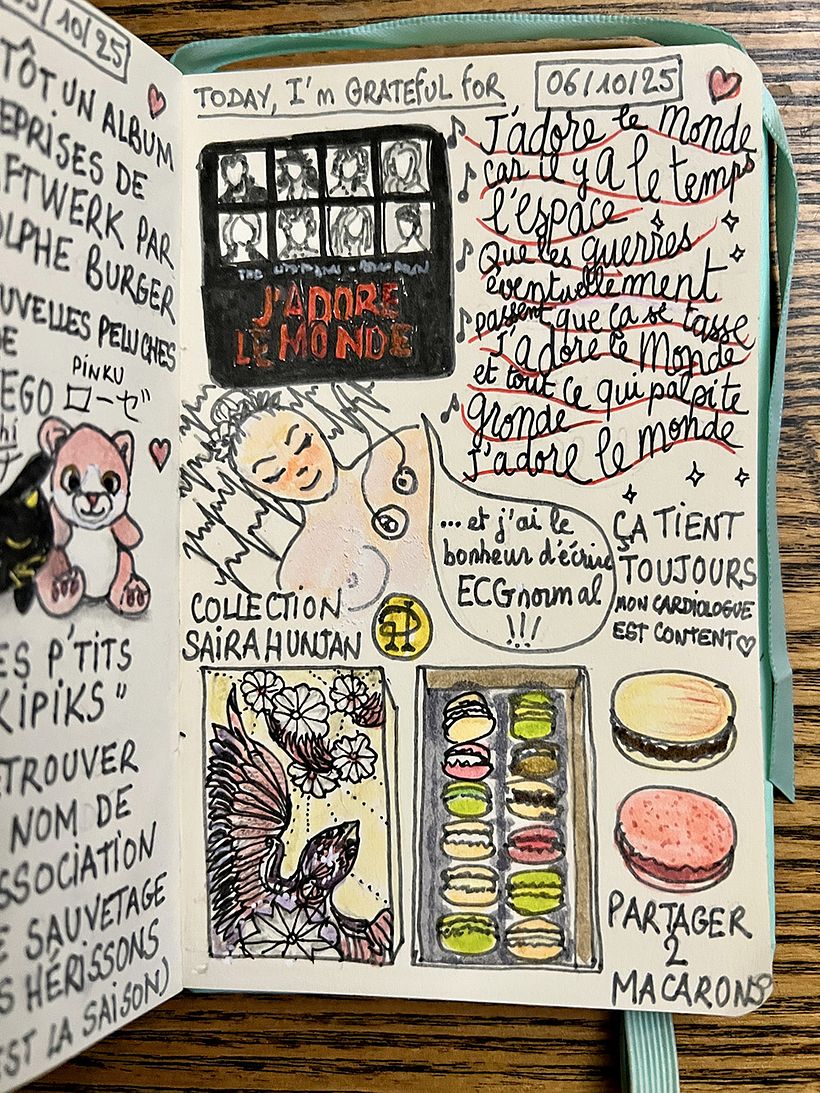 /10/25
TÔT UN ALBUM
EPRISES DE
AFTWERK PAR
OLPHE BURGER
UVELLES PELUCHES
DE
EGO
PINKU
ローゼ
hi
ES P'TITS
KIPIKS"
ETROUVER
NOM DE
SSOCIATION
E SAUVETAGE
S HÉRISSONS
EST LA SAISON)
TODAY, I'm GRATEFUL FOR
06/10/25
J'ADORE
LE MONDE
J'adore le monde
car il y a le temps
l'espace
Que les guerres
éventuellement
passent que ça se tasse
J'adore le Monde
et tout ce qui palpite
gronde
J'adore le monde
... et j'ai le
bonheur d'écrire
ECG normal
!!!
ÇA TIENT
TOUJOURS
MON CARDIOLOGUE
EST CONTENT
COLLECTION
SAIRA HUNJAN
PARTAGER
2
MACARONS